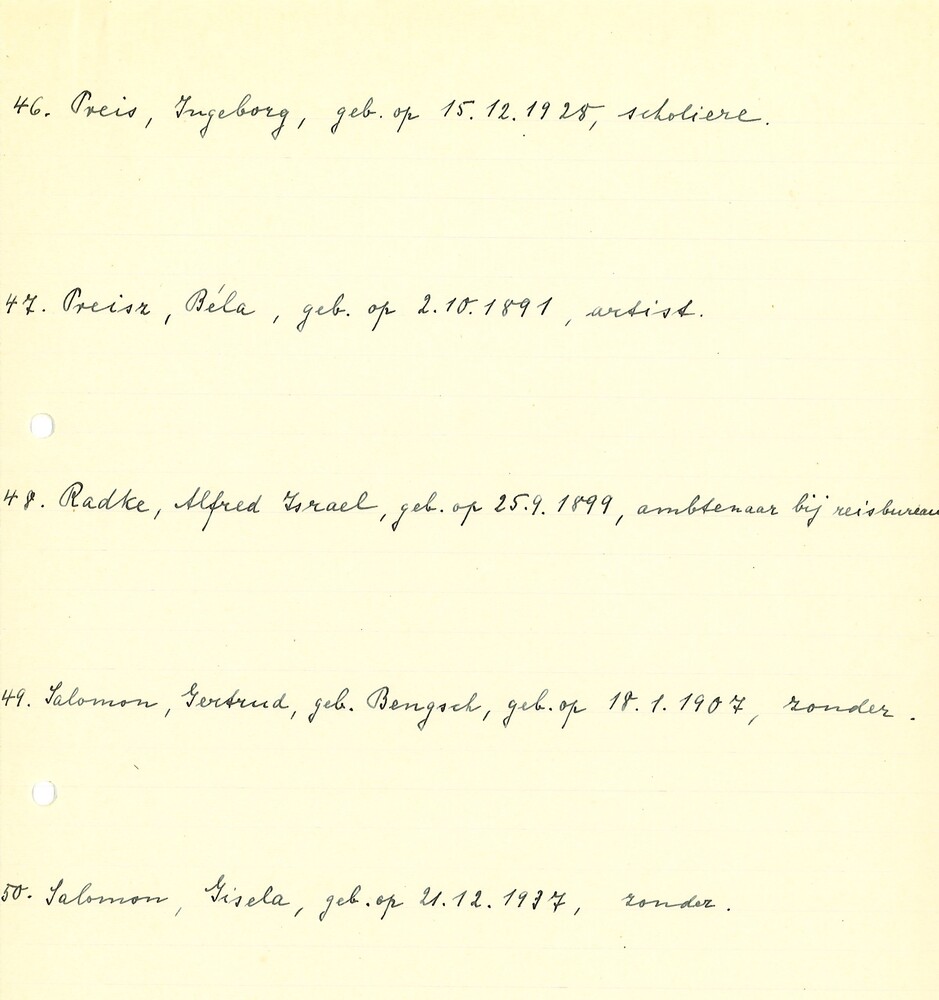 46. Preis, Ingeborg, geb. op 15.12.1928, scholiere.
47. Preisz, Béla, geb. op 2.10.1891, artist.
48. Radke, Alfred Israel, geb. op 25.9.1899, ambtenaar bij reisbureau
49. Salomon, Gertrud, geb. Bengsch, geb. op 18.1.1907, zonder.
50. Salomon, Gisela, geb. op 21.12.1937, zonder.